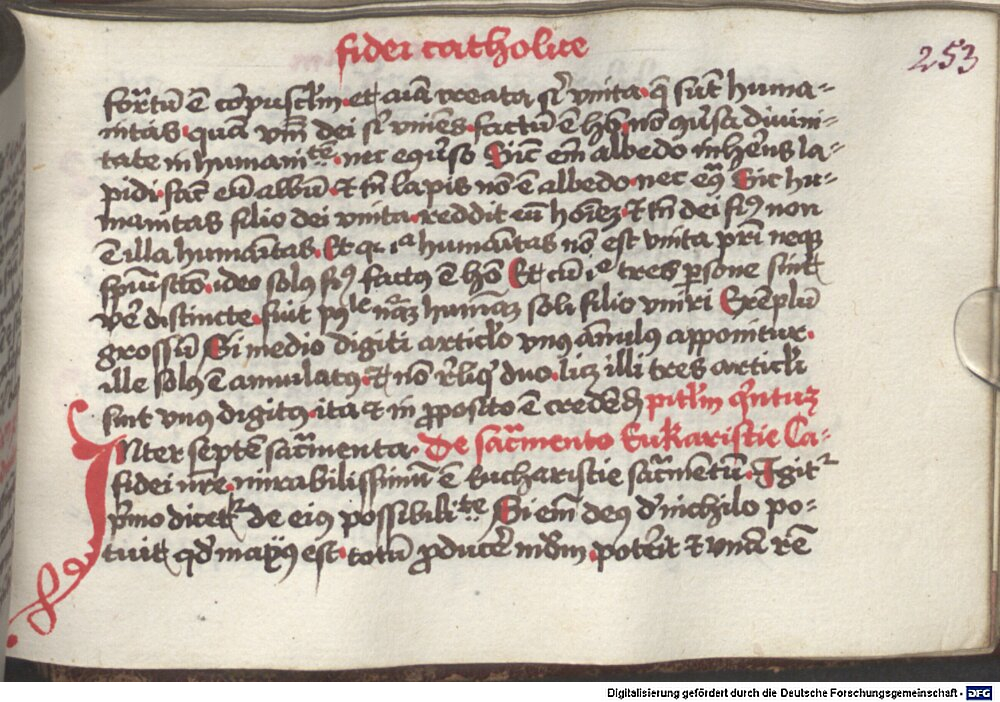 fidei catholice
253
fortū ē corpusclm et aīa creata sl' vnita q̄ sūt huma-
nitas quā vm̄ dei sl' viuēs factū ē hō nō 9uersa diuini-
tate in humanitātē nec eQuerso Sic em̄ albedo inherēs la-
pidi facit eū albū et tn̄ lapis nō ē albedo nec e9 Sic hu-
manitas filio dei vnita reddit eū hoīez et tn̄ dei fi9 non
ē illa humāitas Et q ia humāitas nō est vnita pri neq
spūiscto ideo sol9 fi9 fact9 ē hō Et cū tres psone sint
vē distincte fuit naz humāaz soli filio vniri Exēplū
grossū Si medio digiti articlo vnus anulus apponitur
ille sol9 ē annulat9 et nō rliq duo licz illi tres articli
sint vnus digit9 ita et in pposito ē credēd pitlm qntuz
Inter septē sacrmenta De sacrmento Eukaristie Ca-
fidei nre mirabilissimū ē Eucharistie sacrmētū Igitr
pmo dicet de eius possibilitate Si em̄ deus d nichilo po-
tuit qd maius est totū pducere mdm poterit et vnā rē
Digitalisierung gefördert durch die Deutsche Forschungsgemeinschaft - DFG